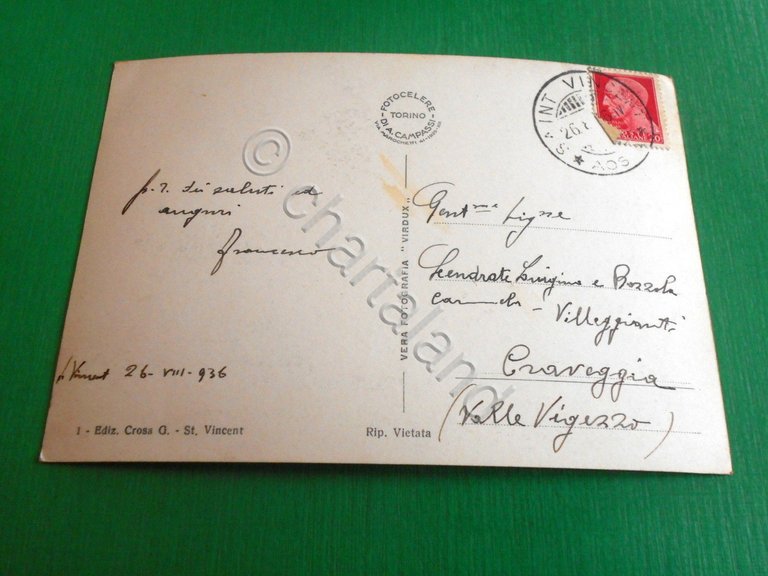 FOTOCELERE
TORINO
DI A. CAMPASSI
SAINT VI
26.
AOS
saluti ed
auguri
Francesco
Gent.me Sig.ne
Scendrate Luigina e Bozzola
Carmela - Villeggianti
Craveggia
(Valle Vigezzo)
St Vincent 26-VIII-936
VERA FOTOGRAFIA "VIRDUX"
1 - Ediz. Crosa G. - St. Vincent
Rip. Vietata
© chartaland